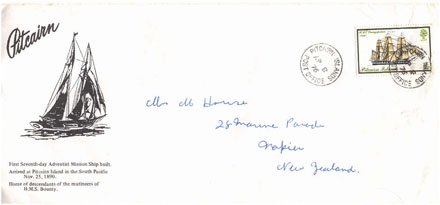 Pitcairn
PITCAIRN ISLANDS
POST OFFICE
First Seventh-day Adventist Mission Ship built.
Arrived at Pitcairn Island in the South Pacific
Nov. 25, 1890.
Home of descendants of the mutineers of
H.M.S. Bounty.
Pitcairn Islands
PITCAIRN ISLANDS
POST OFFICE
Mrs M House
28 Marine Parade
Napier
New Zealand.